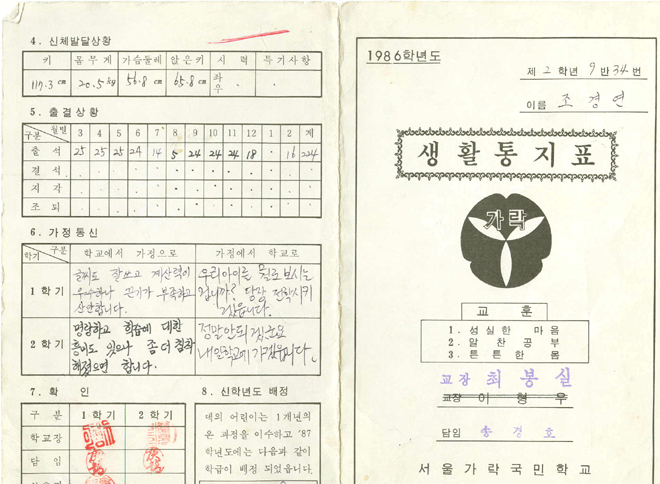 4. 신체발달상황
키 몸무게 가슴둘레 앉은키 시력 특기사항
117.3 cm 20.5 kg 56.8 cm 65.8 cm 좌 우
5. 출결상황
구분 월별 3 4 5 6 7 8 9 10 11 12 1 2 계
출석 25 25 25 24 14 5 24 24 24 18 · 16 224
결석
지각
조퇴
6. 가정통신
학기 구분 학교에서 가정으로 가정에서 학교로
1학기
글씨도 잘쓰고 계산력이
우수하나 끈기가 부족하고
산만합니다.
우리아이를 뭘로보시는
겁니까? 당장 전학시키
겠읍니다.
2학기
명랑하고 학습에 대한
흥미도 있으나 좀 더 침착
해졌으면 합니다.
정말안되겠군요
내일학교에 가겠읍니다.
7. 확인
구분 1학기 2학기
학교장
담임
8. 신학년도 배정
데의 어린이는 1개년의
온 과정을 이수하고 '87
학년도에는 다음과 같이
학급이 배정 되었읍니다.
1986학년도
제 2 학년 9 반 34 번
이름 조경연
생활통지표
가락
교훈
1. 성실한 마음
2. 알찬 공부
3. 튼튼한 몸
교장 최봉실
교장 이형우
담임 송경호
서울가락국민학교